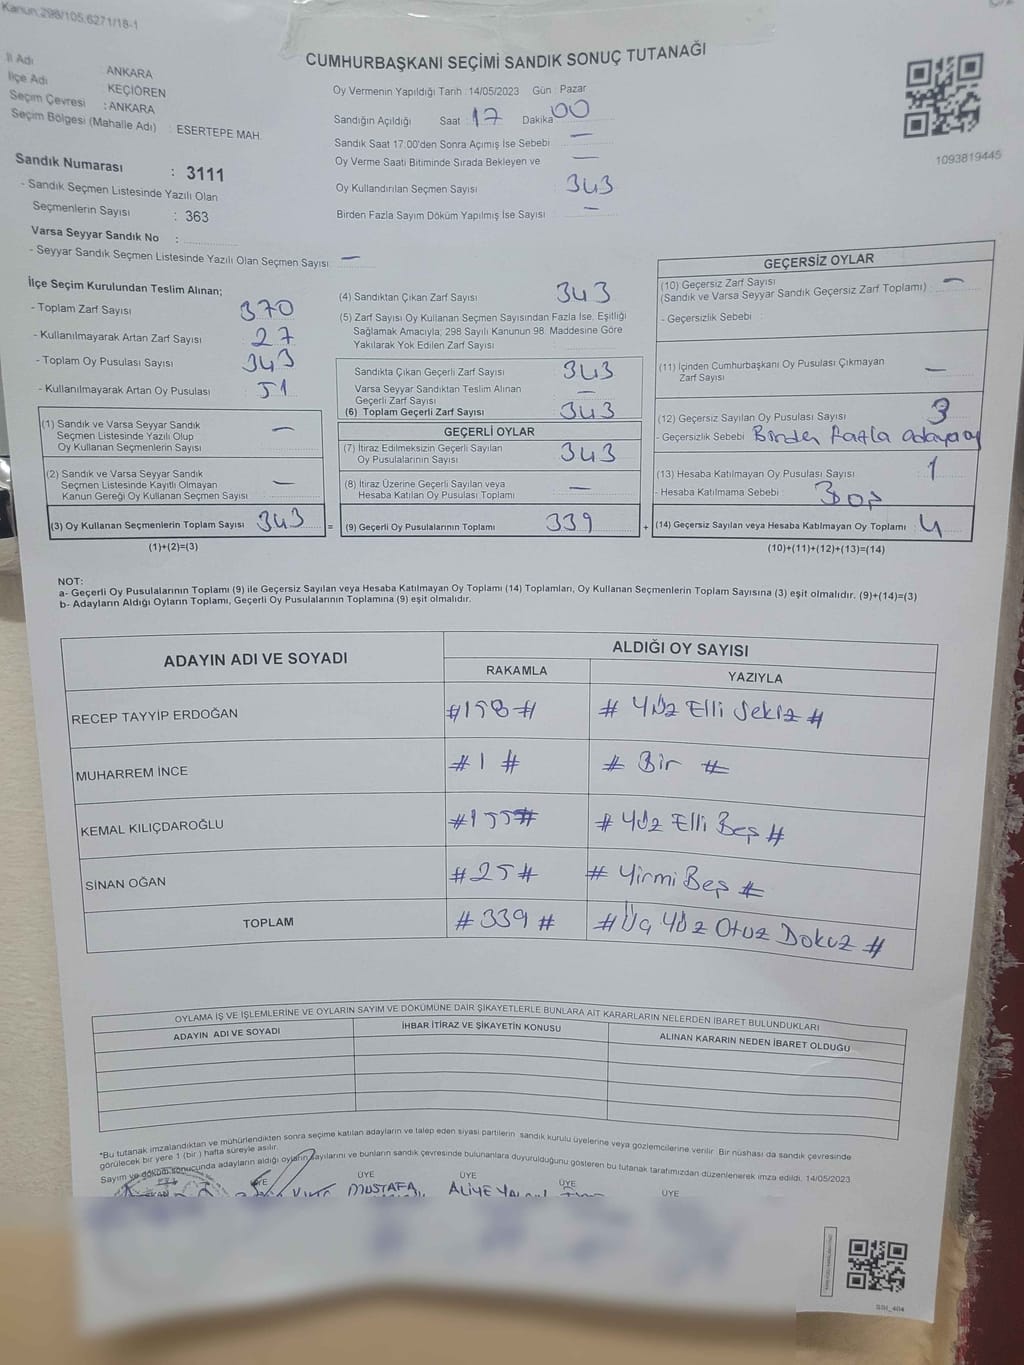 Kanun,298/105,6271/18-1
CUMHURBAŞKANI SEÇİMİ SANDIK SONUÇ TUTANAĞI
İl Adı : ANKARA
İlçe Adı : KEÇİÖREN
Seçim Çevresi : ANKARA
Seçim Bölgesi (Mahalle Adı) : ESERTEPE MAH.
Sandık Numarası : 3111
- Sandık Seçmen Listesinde Yazılı Olan
Seçmenlerin Sayısı : 363
Varsa Seyyar Sandık No :
- Seyyar Sandık Seçmen Listesinde Yazılı Olan Seçmen Sayısı : —
Oy Vermenin Yapıldığı Tarih : 14/05/2023 Gün : Pazar
Sandığın Açıldığı Saat : 17 Dakika 00
Sandık Saat 17:00'den Sonra Açımış İse Sebebi —
Oy Verme Saati Bitiminde Sırada Bekleyen ve —
Oy Kullandırılan Seçmen Sayısı : 343
Birden Fazla Sayım Döküm Yapılmış İse Sayısı : —
1093819445
İlçe Seçim Kurulundan Teslim Alınan;
- Toplam Zarf Sayısı : 370
- Kullanılmayarak Artan Zarf Sayısı : 27
- Toplam Oy Pusulası Sayısı : 343
- Kullanılmayarak Artan Oy Pusulası : 51
(1) Sandık ve Varsa Seyyar Sandık
Seçmen Listesinde Yazılı Olup
Oy Kullanan Seçmenlerin Sayısı : —
(2) Sandık ve Varsa Seyyar Sandık
Seçmen Listesinde Kayıtlı Olmayan
Kanun Gereği Oy Kullanan Seçmen Sayısı : —
(3) Oy Kullanan Seçmenlerin Toplam Sayısı : 343 =
(1)+(2)=(3)
(4) Sandıktan Çıkan Zarf Sayısı : 343
(5) Zarf Sayısı Oy Kullanan Seçmen Sayısından Fazla İse, Eşitliği
Sağlamak Amacıyla; 298 Sayılı Kanunun 98. Maddesine Göre
Yakılarak Yok Edilen Zarf Sayısı :
Sandıkta Çıkan Geçerli Zarf Sayısı : 343
Varsa Seyyar Sandıktan Teslim Alınan
Geçerli Zarf Sayısı : —
(6) Toplam Geçerli Zarf Sayısı : 343
GEÇERLİ OYLAR
(7) İtiraz Edilmeksizin Geçerli Sayılan
Oy Pusulalarının Sayısı : 343
(8) İtiraz Üzerine Geçerli Sayılan veya
Hesaba Katılan Oy Pusulası Toplamı : —
(9) Geçerli Oy Pusulalarının Toplamı : 339 +
GEÇERSİZ OYLAR
(10) Geçersiz Zarf Sayısı
(Sandık ve Varsa Seyyar Sandık Geçersiz Zarf Toplamı) : —
- Geçersizlik Sebebi :
(11) İçinden Cumhurbaşkanı Oy Pusulası Çıkmayan
Zarf Sayısı : —
(12) Geçersiz Sayılan Oy Pusulası Sayısı : 3
- Geçersizlik Sebebi : Birden fazla adaya oy
(13) Hesaba Katılmayan Oy Pusulası Sayısı : 1
- Hesaba Katılmama Sebebi : Boş
(14) Geçersiz Sayılan veya Hesaba Katılmayan Oy Toplamı : 4
(10)+(11)+(12)+(13)=(14)
NOT:
a- Geçerli Oy Pusulalarının Toplamı (9) ile Geçersiz Sayılan veya Hesaba Katılmayan Oy Toplamı (14) Toplamları, Oy Kullanan Seçmenlerin Toplam Sayısına (3) eşit olmalıdır. (9)+(14)=(3)
b- Adayların Aldığı Oyların Toplamı, Geçerli Oy Pusulalarının Toplamına (9) eşit olmalıdır.
ADAYIN ADI VE SOYADI
ALDIĞI OY SAYISI
RAKAMLA YAZIYLA
RECEP TAYYİP ERDOĞAN #158# # Yüz Elli Sekiz #
MUHARREM İNCE #1# # Bir #
KEMAL KILIÇDAROĞLU #155# # Yüz Elli Beş #
SİNAN OĞAN #25# # Yirmi Beş #
TOPLAM #339# # Üç Yüz Otuz Dokuz #
OYLAMA İŞ VE İŞLEMLERİNE VE OYLARIN SAYIM VE DÖKÜMÜNE DAİR ŞİKAYETLERLE BUNLARA AİT KARARLARIN NELERDEN İBARET BULUNDUKLARI
ADAYIN ADI VE SOYADI İHBAR İTİRAZ VE ŞİKAYETİN KONUSU ALINAN KARARIN NEDEN İBARET OLDUĞU
*Bu tutanak imzalandıktan ve mühürlendikten sonra seçime katılan adayların ve talep eden siyasi partilerin sandık kurulu üyelerine veya gözlemcilerine verilir. Bir nüshası da sandık çevresinde
görülecek bir yere 1 (bir ) hafta süreyle asılır.
Sayım ve döküm sonucunda adayların aldığı oyların sayılarını ve bunların sandık çevresinde bulunanlara duyurulduğunu gösteren bu tutanak tarafımızdan düzenlenerek imza edildi. 14/05/2023
ÜYE ÜYE ÜYE ÜYE
MUSTAFA ALİYE
SSI_404